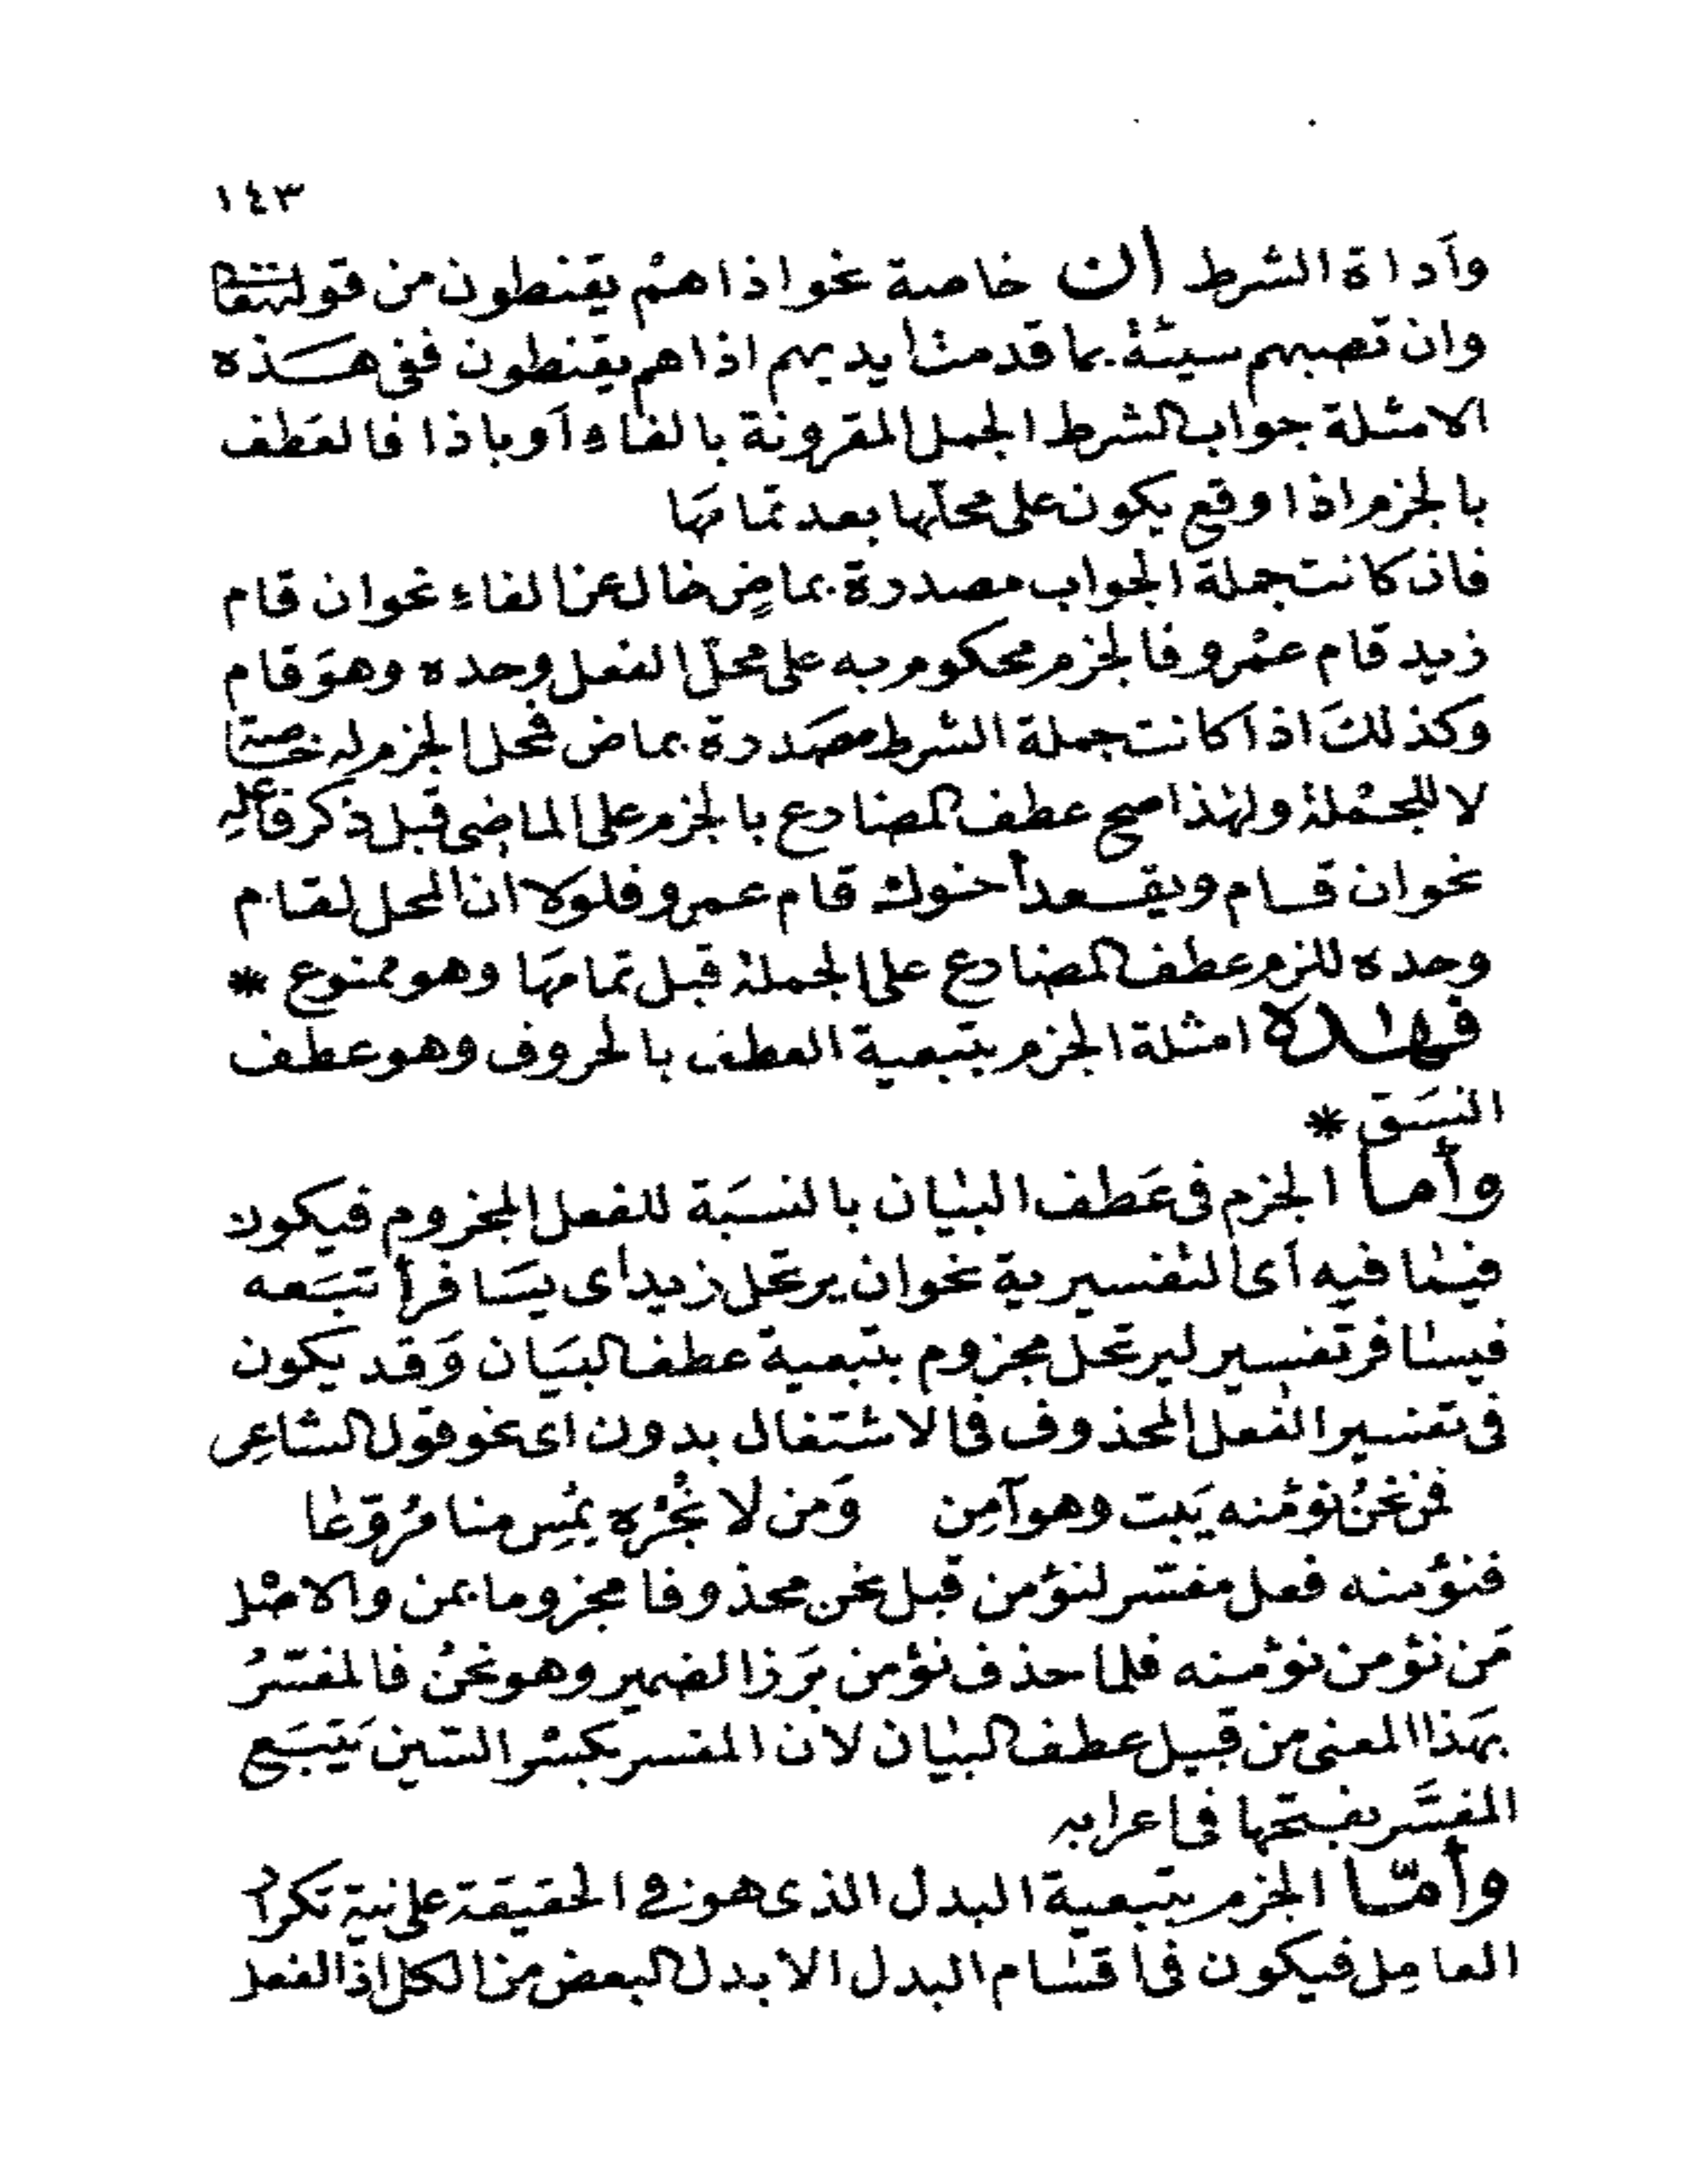 ١٤٣
وأداة الشرط إن خاصة نحو اذا هم يقنطون من قوله تعالى
وان تصبهم سيئة بما قدمت أيديهم اذا هم يقنطون ففى هذه
الامثلة جواب الشرط الجمل المقرونة بالفاء أو باذا فالعطف
بالجزم اذا وقع يكون على محلها بعد تمامها
فان كانت جملة الجواب مصدرة بماضٍ خال عن الفاء نحو ان قام
زيد قام عمْرو فالجزم محكوم به على محلّ الفعل وحده وهوَ قام
وكذلكَ اذا كانت جملة الشرط مصَدرة بماض فمحل الجزم له خاصة
لا للجمْلة ولهذا صح عطف المضارع بالجزم على الماضى قبل ذكر فاعله
نحو ان قام ويقعد أخوك قام عمرو فلولا ان المحل لقام
وحده للزم عطف المضارع على الجملة قبل تمامهَا وهو ممنوع *
فهذه امثلة الجزم بتبعية العطف بالحروف وهو عطف
النسَق *
وأما الجزم فى عَطف البيان بالنسبَة للفعل المجزوم فيكون
فيما فيه أى التفسيرية نحو ان يرتحل زيد اى يسَافر أتبَعه
فيسافر تفسير ليرتحل مجزوم بتبعية عطف البيَان وَقد يكون
فى تفسير الفعل المحذوف فى الاشتغال بدون اى نحو قول الشاعِر
فمن نحنُ نؤمْنه يَبت وهو آمِن وَمن لا نُجْره يمُسِ منا مُروّعا
فنؤمنه فعل مفسّر لنؤمن قبل نحن محذوفا مجزوما بمن والاصْل
مَن نؤمن نؤمنه فلما حذف نؤمن بَرَز الضمير وهو نحنُ فالمفسّرُ
بهَذا المعنى من قبيل عطف البيان لان المفسر بكسْر السّين يَتبَع
المفسَّر بفتحها فى اعرابه
وأمّا الجزم بتبعية البدل الذى هو فى الحقيقة على نية تكرار
العامِل فيكون فى اقسام البدل الا بدل البعض من الكل اذ الفعل